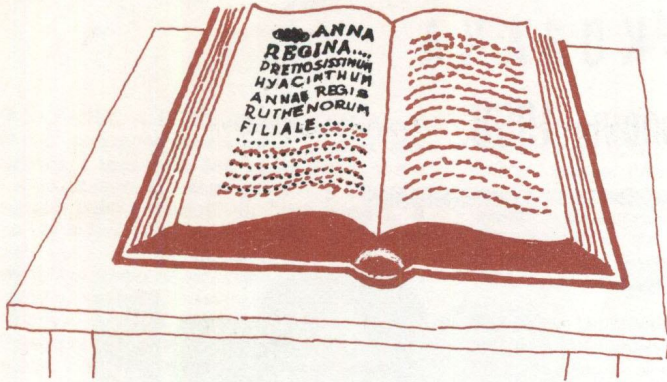 ANNA
REGINA....
PRETIOSISSIMUM
HYACINTHUM
ANNAE REGIS
RUTHENORUM
FILIALE